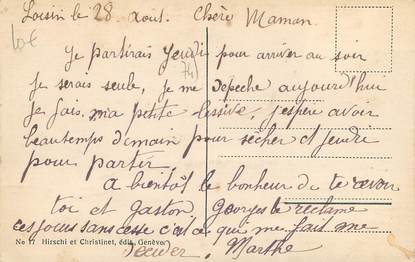 Loisin le 28 août. Chère Maman.
Je partirais jeudi pour arriver au soir
je serais seule, je me depeche aujourd'hui
je fais ma petite lessive, j'espère avoir
beautemps demain pour sècher et jeudi
pour partir.
a bientôt le bonheur de te revoir
toi et gaston Georges le réclame
ces jours sans cesse c'est ce qui me fais me
Marthe
No 17 Hirschi et Christinet, édit. Genève